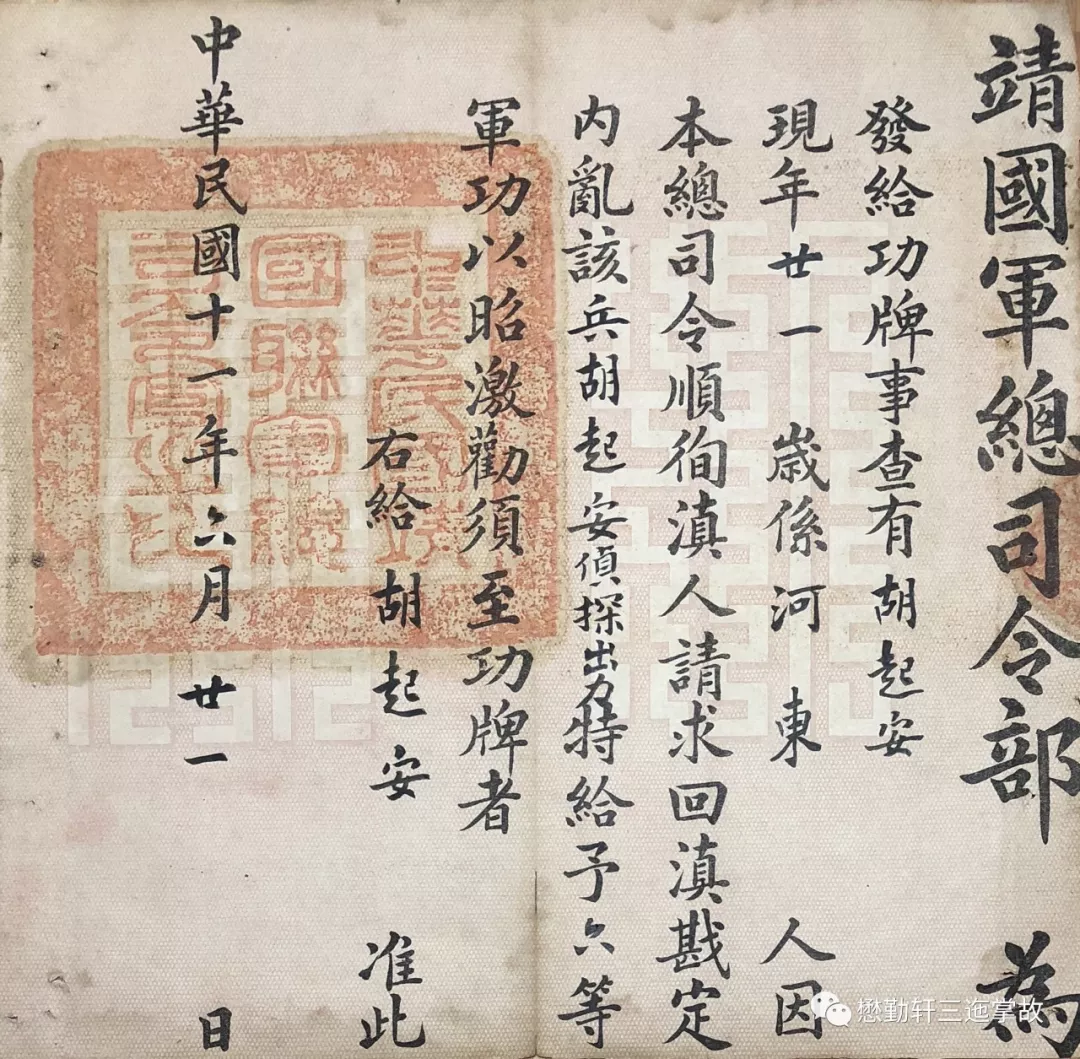 靖國軍總司令部 為
發給功牌事查有胡起安
現年廿一歲係河東人因
本總司令順徇滇人請求回滇戡定
內亂該兵胡起安偵探出力特給予六等
軍功以昭激勸須至功牌者
右給胡起安 准此
中華民國十一年六月廿一日
懋勤轩三迤掌故